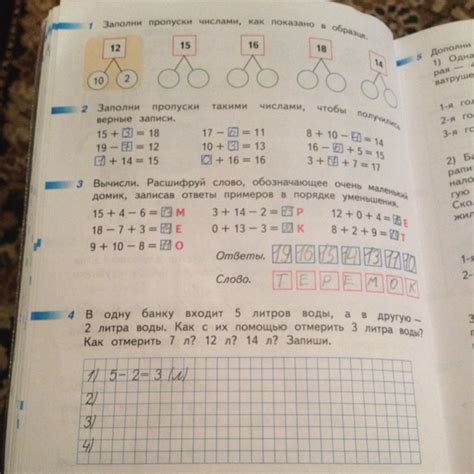 1 Заполни пропуски числами, как показано в образце.
12 15 16 18 14
10 2
2 Заполни пропуски такими числами, чтобы получились
верные записи.
15 + 3 = 18 17 − 6 = 11 8 + 10 − = 14
19 − 7 = 12 10 + 3 = 13 16 − + 5 = 15
1 + 14 = 15 0 + 16 = 16 3 + + 7 = 17
3 Вычисли. Расшифруй слово, обозначающее очень маленький
домик, записав ответы примеров в порядке уменьшения.
15 + 4 − 6 = М 3 + 14 − 2 = Р 12 + 0 + 4 = Е
18 − 7 + 3 = Е 0 + 13 − 3 = К 8 + 2 + 9 = Т
9 + 10 − 8 = О
Ответы. 19 16 15 14 13 11 10
Слово. Т Е Р Е М О К
4 В одну банку входит 5 литров воды, а в другую —
2 литра воды. Как с их помощью отмерить 3 литра воды?
Как отмерить 7 л? 12 л? 14 л? Запиши.
1) 5 − 2 = 3 (л)
2)
3)
4)
5 Дополни
1) Одна
рая —
ватрушк
1-я
2-я
2)
1-я
2-я